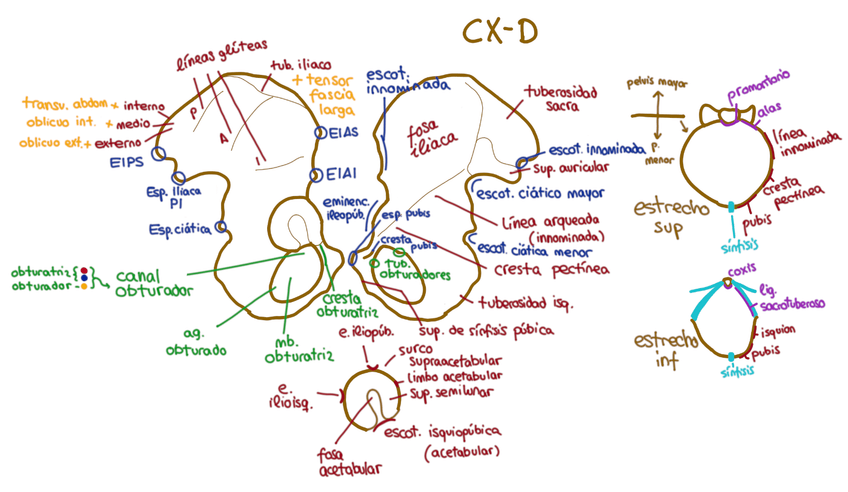 CX-D
líneas glúteas
tub. iliaco
+ tensor
fascia
larga
transv. abdom + interno
oblicuo int. + medio
oblicuo ext. + externo
P
A
I
EIPS
EIAS
EIAI
Esp. Iliaca
PI
Esp. ciática
obturatriz
obturador
canal
obturador
ag.
obturado
mb.
obturatriz
cresta
obturatriz
escot.
innominada
fosa
iliaca
tuberosidad
sacra
escot. innominada
sup. auricular
escot. ciático mayor
eminenc.
ileopúb.
esp. pubis
Línea arqueada
(innominada)
cresta
pubis
escot. ciática menor
tub.
obturadores
cresta pectínea
tuberosidad isq.
sup. de sínfisis púbica
e. iliopúb.
surco
supraacetabular
limbo acetabular
sup. semilunar
e.
ilioisq.
escot. isquiopúbica
(acetabular)
fosa
acetabular
pelvis mayor
P.
menor
promontorio
alas
línea
innominada
cresta
pectínea
pubis
sínfisis
estrecho
sup
coxis
lig.
sacrotuberoso
isquion
pubis
sínfisis
estrecho
inf